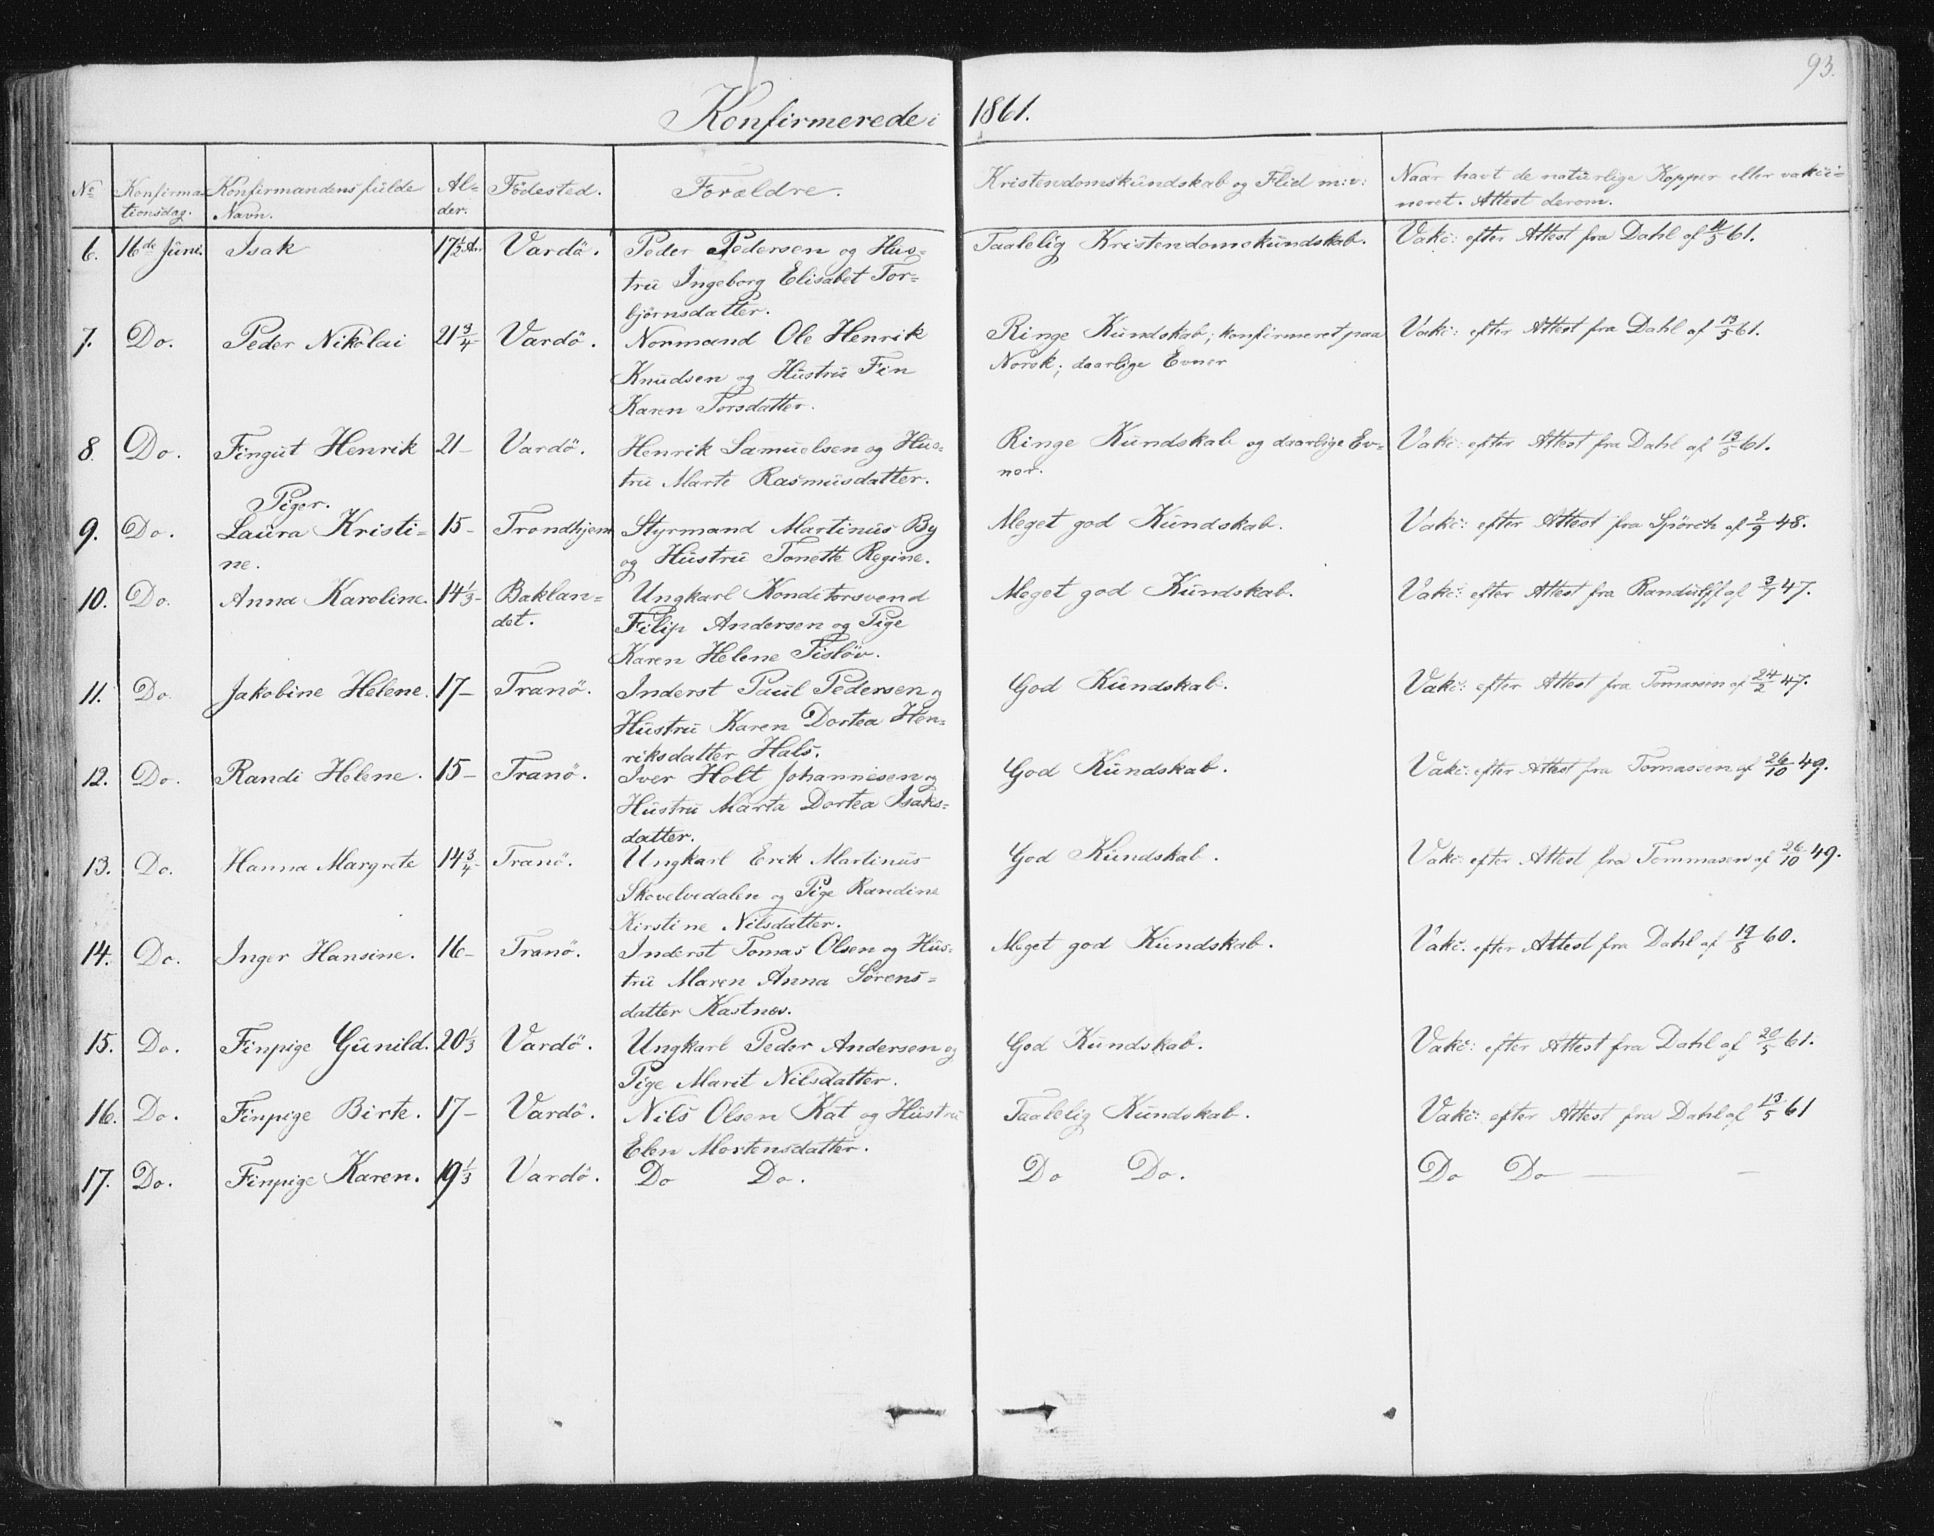 93.
Konfirmerede i 1861.
No Konfirma- Konfirmandens fulde Al- Födested. Forældre. Kristendomskundskab og Flid m:v: Naar havt de naturlige Kopper eller vakci-
tionsdag. Navn. der. neret. Attest derom.
6. 16de Juni. Isak 17½ Aar Vardö. Peder Pedersen og Hus- Taalelig Kristendomskundskab. Vakc: efter Attest fra Dahl af 61.
tru Ingeborg Elisabet Tor-
björnsdatter.
7. Do. Peder Nikolai 21¾ Vardö. Normand Ole Henrik Ringe Kundskab; konfirmeret paa Vakc: efter Attest fra Dahl af 13/5 61.
Knudsen og Hustru Fin Norsk; daarlige Evner
Karen Torsdatter.
8. Do. Fingut Henrik 21- Vardö. Henrik Samuelsen og Hus- Ringe Kundskab og daarlige Ev- Vakc: efter Attest fra Dahl af 13/5 61.
tru Marte Rasmusdatter. ner.
Piger.
9. Do. Laura Kristi- 15- Trondhjem Styrmand Martinus By Meget god Kundskab. Vakc: efter Attest fra Spörck af 2/9 48.
ne. og Hustru Tonette Regine.
10. Do. Anna Karoline. 14⅓- Baklan- Ungkarl Konditorsvend Meget god Kundskab. Vakc: efter Attest fra Randulff af 3/7 47.
det. Filip Andersen og Pige
Karen Helene Tislöv.
11. Do Jakobine Helene. 17- Tranö. Inderst Paul Pedersen og God Kundskab. Vakc: efter Attest fra Tomassen af 24/2 47.
Hustru Karen Dortea Hen-
riksdatter Hals.
12. Do. Randi Helene. 15- Tranö. Iver Holt Johannesen og God Kundskab. Vakc: efter Attest fra Tomassen af 26/10 49.
Hustru Marta Dortea Isaks-
datter.
13. Do. Hanna Margrete 14¾- Tranö. Ungkarl Erik Martinus God Kundskab. Vakc: efter Attest fra Tommasen af 26/10 49.
Skovelvedalen og Pige Randine
Kirstine Nilsdatter.
14. Do. Inger Hansine. 16- Tranö. Inderst Tomas Olsen og Hus- Meget god Kundskab. Vakc: efter Attest fra Dahl af 60.
tru Maren Anna Sörens-
datter Kastnes.
15. Do. Finpige Gunild. 20⅓ Vardö. Ungkarl Peder Andersen og God Kundskab. Vakc: efter Attest fra Dahl af 20/5 61.
Pige Marit Nilsdatter.
16. Do. Finpige Birte. 17- Vardö. Nils Olsen Kat og Hustru Taalelig Kundskab. Vakc: efter Attest fra Dahl af 13/5 61
Elen Mortensdatter.
17. Do. Finpige Karen. 19⅓ Vardö. Do Do. Do Do. Do Do — —